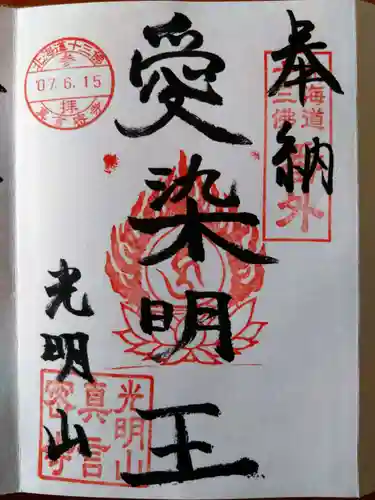 奉納
北海道
十三佛
番外
愛染明王
光明山
光明山
真言
密寺
北海道十三佛
参
'07.6.15
拝
真言密寺